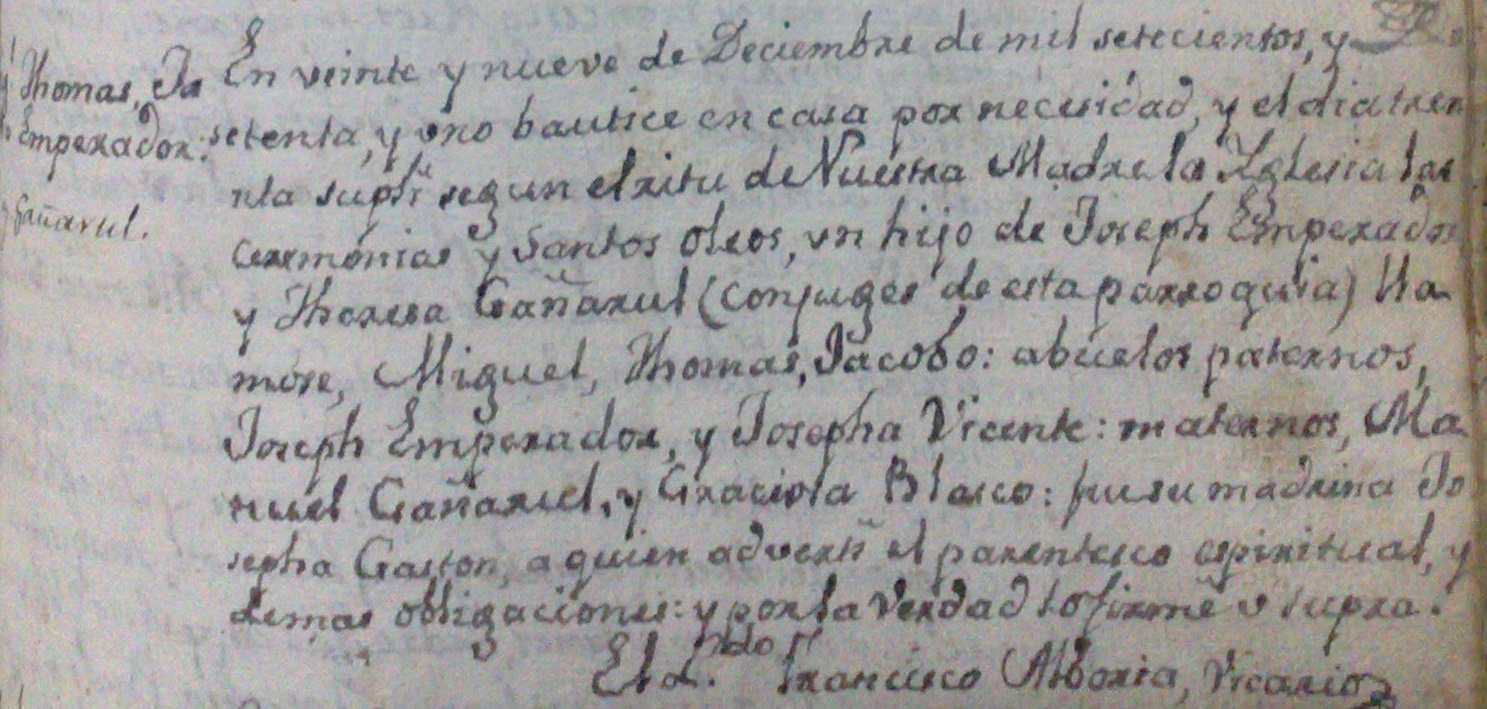 Thomas, Ja
Emperador:
Gañarul.
En veinte y nueve de Deciembre de mil setecientos, y
setenta, y uno bautice en casa por necesidad, y el dia tren
nta supli segun el ritu de Nuestra Madre la Yglesia las
ceremonias y Santos oleos, vn hijo de Joseph Emperador
y Theresa Gañarul (conjuges de esta parroquia) lla
móse, Miguel, Thomas, Jacobo: abuelos paternos,
Joseph Emperador, y Josepha Vicente: maternos, Ma
nuel Gañarul, y Graciosa Blasco: fue su madrina Jo
sepha Gaston, a quien adverti el parentesco espiritual, y
demas obligaciones: y por la verdad lo firmé v supra.
Francisco Alboria, Vicario